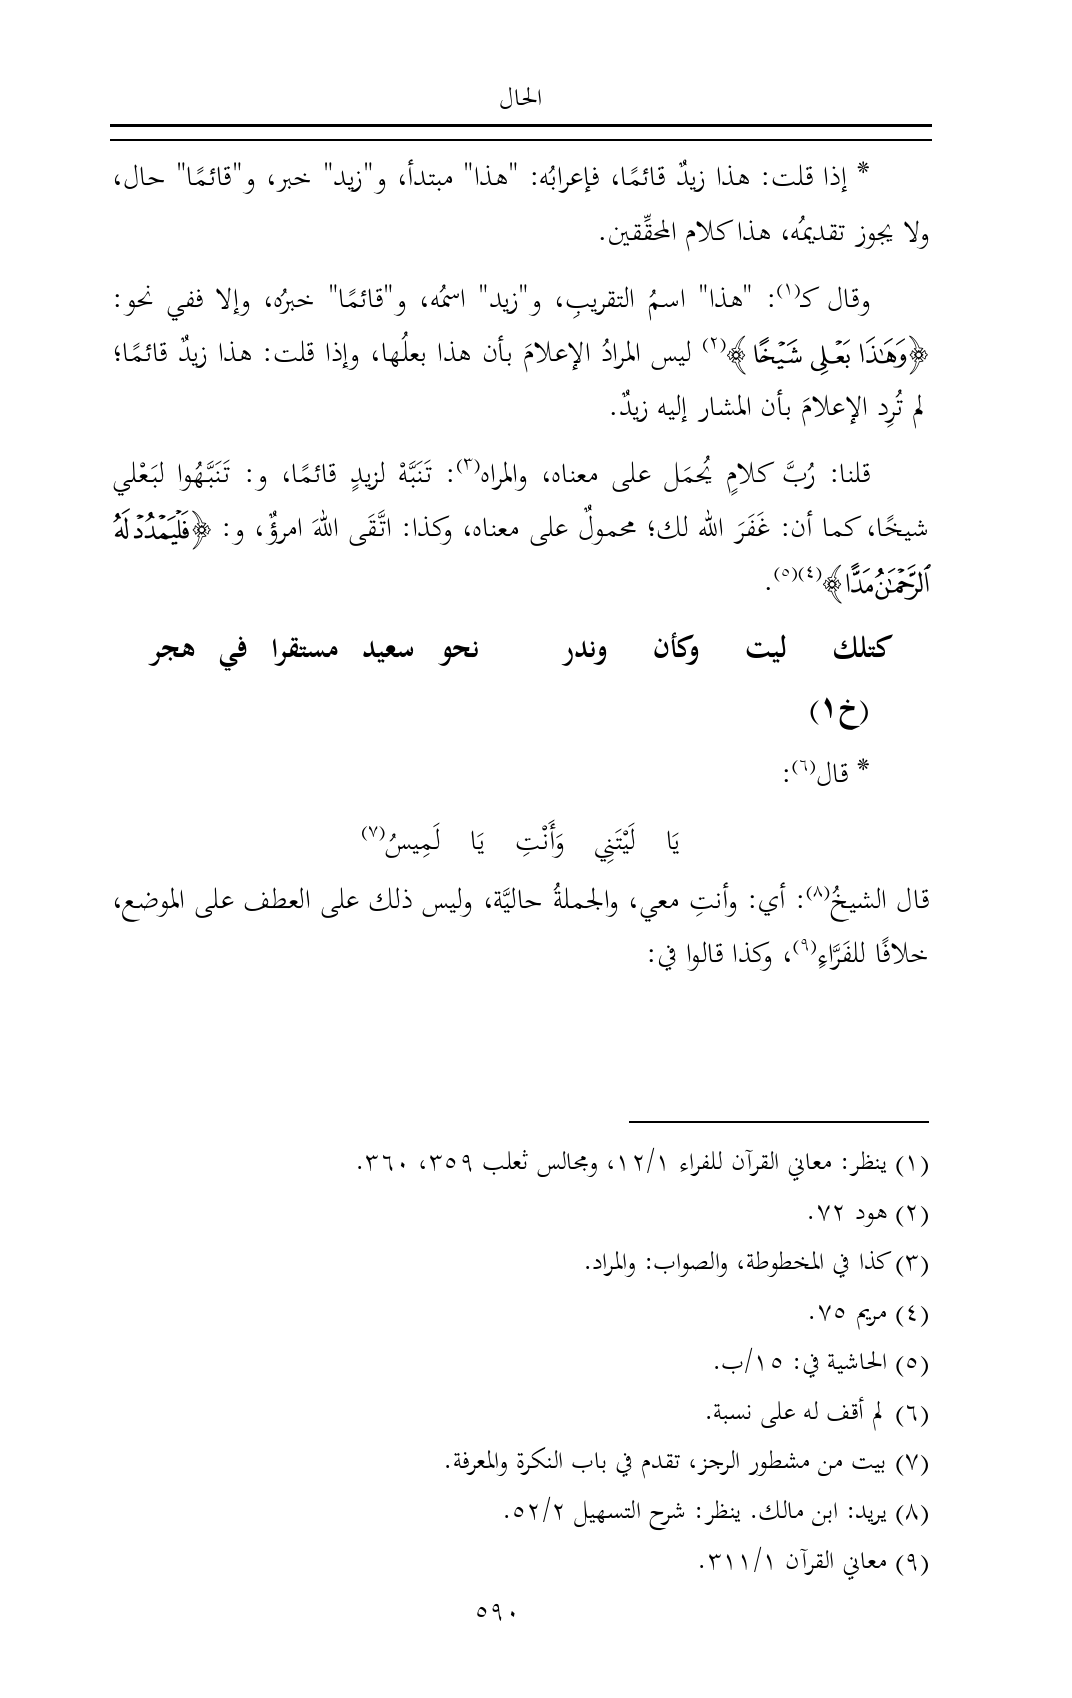 الحال
* إذا قلت: هذا زيدٌ قائمًا، فإعرابُه: "هذا" مبتدأ، و"زيد" خبر، و"قائمًا" حال،
ولا يجوز تقديمُه، هذا كلام المحقِّقين.
وقال كـ(١): "هذا" اسمُ التقريبِ، و"زيد" اسمُه، و"قائمًا" خبرُه، وإلا ففي نحو:
﴿وَهَٰذَا بَعْلِي شَيْخًا﴾(٢) ليس المرادُ الإعلامَ بأن هذا بعلُها، وإذا قلت: هذا زيدٌ قائمًا؛
لم تُرِد الإعلامَ بأن المشار إليه زيدٌ.
قلنا: رُبَّ كلامٍ يُحمَل على معناه، والمراه(٣): تَنَبَّهْ لزيدٍ قائمًا، و: تَنَبَّهُوا لبَعْلي
شيخًا، كما أن: غَفَرَ الله لك؛ محمولٌ على معناه، وكذا: اتَّقَى اللهَ امرؤٌ، و: ﴿فَلْيَمْدُدْ لَهُ
ٱلرَّحْمَٰنُ مَدًّا﴾(٤)(٥).
كتلك ليت وكأن وندر نحو سعيد مستقرا في هجر
(خ١)
* قال(٦):
يَا لَيْتَنِي وَأَنْتِ يَا لَمِيسُ(٧)
قال الشيخُ(٨): أي: وأنتِ معي، والجملةُ حاليَّة، وليس ذلك على العطف على الموضع،
خلافًا للفَرَّاءِ(٩)، وكذا قالوا في:
(١) ينظر: معاني القرآن للفراء ١٢/١، ومجالس ثعلب ٣٥٩، ٣٦٠.
(٢) هود ٧٢.
(٣) كذا في المخطوطة، والصواب: والمراد.
(٤) مريم ٧٥.
(٥) الحاشية في: ١٥/ب.
(٦) لم أقف له على نسبة.
(٧) بيت من مشطور الرجز، تقدم في باب النكرة والمعرفة.
(٨) يريد: ابن مالك. ينظر: شرح التسهيل ٥٢/٢.
(٩) معاني القرآن ٣١١/١.
٥٩٠